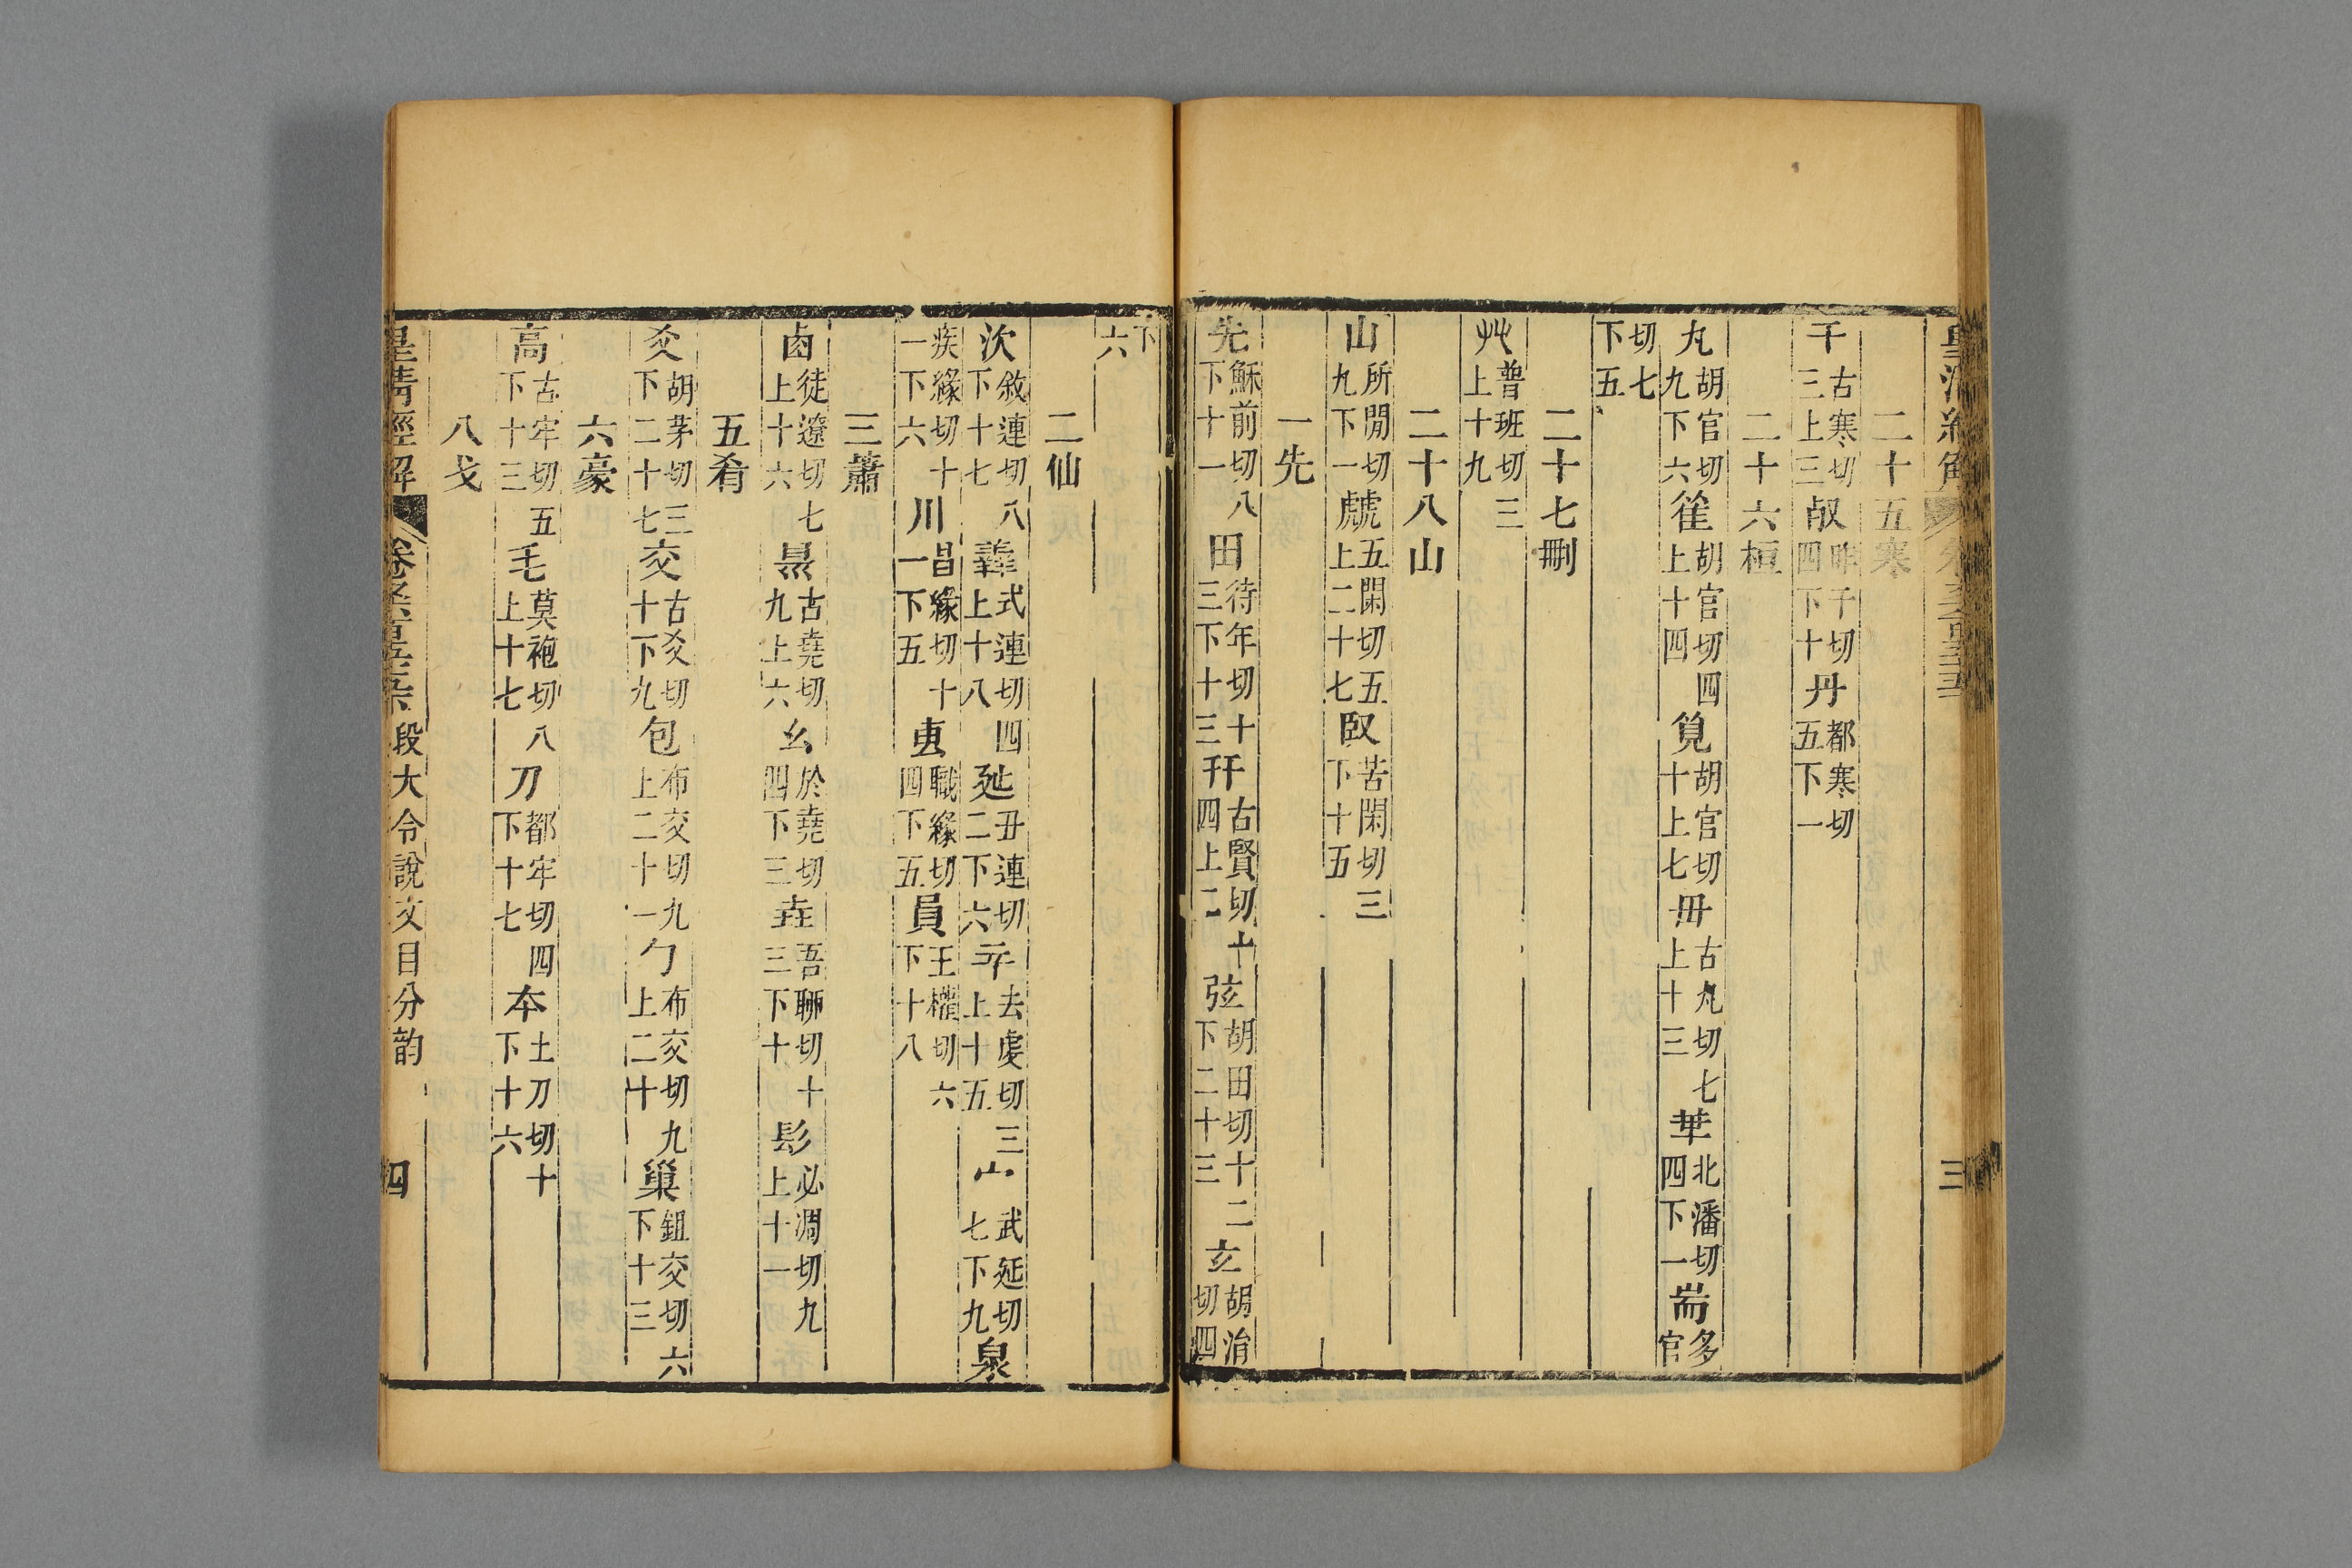 二十五寒
干古寒切三上三𣦻昨干切四下十丹都寒切五下一
二十六桓
丸胡官切九下六雈胡官切四上十四萈胡官切十上七毌古丸切七上十三𠦒北潘切四下一耑多官
切七下五
二十七刪
𠬜普班切三上十九
二十八山
山所閒切九下一虤五閑切五上二十七臤苦閑切三下十五
一先
先穌前切八下十一田待年切十三下十三幵古賢切十四上二弦胡田切十二下二十三玄胡涓切四
下六
二仙
㳄敘連切八下十七羴式連切四上十八㢟丑連切二下六䇂去虔切三上十五宀武延切七下九泉
疾緣切十一下六川昌緣切十一下五叀職緣切四下五員王權切六下十八
三蕭
卤徒遼切七上十六県古堯切九上六幺於堯切四下三垚吾聊切十三下十髟必凋切九上十一
五肴
爻胡茅切三下二十七交古爻切十下九包布交切九上二十一勹布交切九上二十巢鉏交切六下十三
六豪
高古牢切五下十三毛莫袍切八上十七刀都牢切四下十七夲土刀切十下十六
八戈
皇清經解 段大令說文目分韵 四